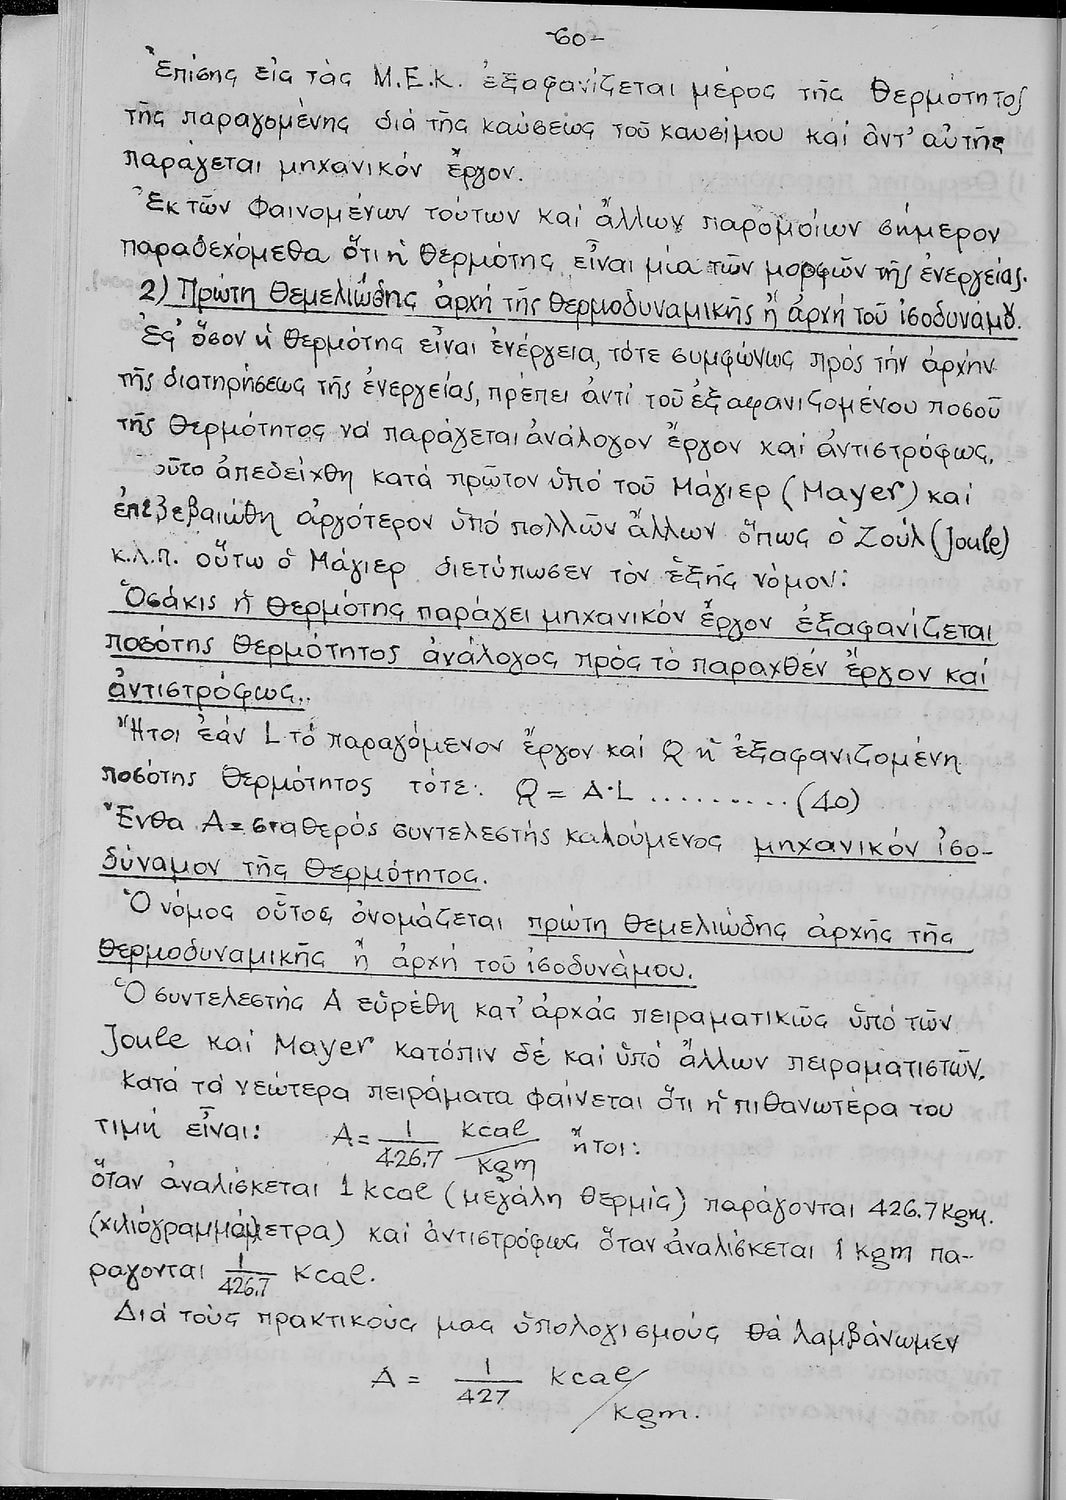 -60-
Ἐπίσης εἰς τὰς Μ.Ε.Κ. ἐξαφανίζεται μέρος τῆς θερμότητος
τῆς παραγομένης διά τῆς καύσεως τοῦ καυσίμου καί ἀντ' αὐτῆς
παράγεται μηχανικόν ἔργον.
Ἐκ τῶν φαινομένων τούτων καί ἄλλων παρομοίων σήμερον
παραδεχόμεθα ὅτι ἡ θερμότης εἶναι μία τῶν μορφῶν τῆς ἐνεργείας.
2) Πρώτη θεμελιώδης ἀρχή τῆς θερμοδυναμικῆς ἤ ἀρχή τοῦ ἰσοδυνάμου.
Ἐφ' ὅσον ἡ θερμότης εἶναι ἐνέργεια, τότε συμφώνως πρός τήν ἀρχήν
τῆς διατηρήσεως τῆς ἐνεργείας, πρέπει ἀντί τοῦ ἐξαφανιζομένου ποσοῦ
τῆς θερμότητος νά παράγεται ἀνάλογον ἔργον καί ἀντιστρόφως.
οῦτο ἀπεδείχθη κατά πρῶτον ὑπό τοῦ Μάγιερ (Mayer) καί
ἐπεβεβαιώθη ἀργότερον ὑπό πολλῶν ἄλλων ὅπως ὁ Ζούλ (Joule)
κ.λ.π. οὕτω ὁ Μάγιερ διετύπωσεν τὸν ἑξῆς νόμον:
Ὁσάκις ἡ θερμότης παράγει μηχανικόν ἔργον ἐξαφανίζεται
ποσότης θερμότητος ἀνάλογος πρὸς τὸ παραχθέν ἔργον καί
ἀντιστρόφως..
Ἤτοι ἐάν L τό παραγόμενον ἔργον καί Q ἡ ἐξαφανιζομένη
ποσότης θερμότητος τότε: Q = A·L ..........(40)
Ἔνθα A= σταθερός συντελεστής καλούμενος μηχανικόν ἰσο-
δύναμον τῆς θερμότητος.
Ὁ νόμος οὗτος ὀνομάζεται πρώτη θεμελιώδης ἀρχῆς τῆς
θερμοδυναμικῆς ἤ ἀρχή τοῦ ἰσοδυνάμου.
Ὁ συντελεστής A εὑρέθη κατ' ἀρχάς πειραματικῶς ὑπό τῶν
Joule καί Mayer κατόπιν δέ καί ὑπό ἄλλων πειραματιστῶν.
Κατά τά νεώτερα πειράματα φαίνεται ὅτι ἡ πιθανωτέρα του
τιμή εἶναι: A= 1/426.7 kcal/kgm ἤτοι:
ὅταν ἀναλίσκεται 1 kcal (μεγάλη θερμίς) παράγονται 426.7 kgm.
(χιλιόγραμμόμετρα) καί ἀντιστρόφως ὅταν ἀναλίσκεται 1 kgm πα-
ράγονται 1/426.7 kcal.
Διά τοὺς πρακτικούς μας ὑπολογισμούς θά λαμβάνωμεν
A = 1/427 kcal/kgm.